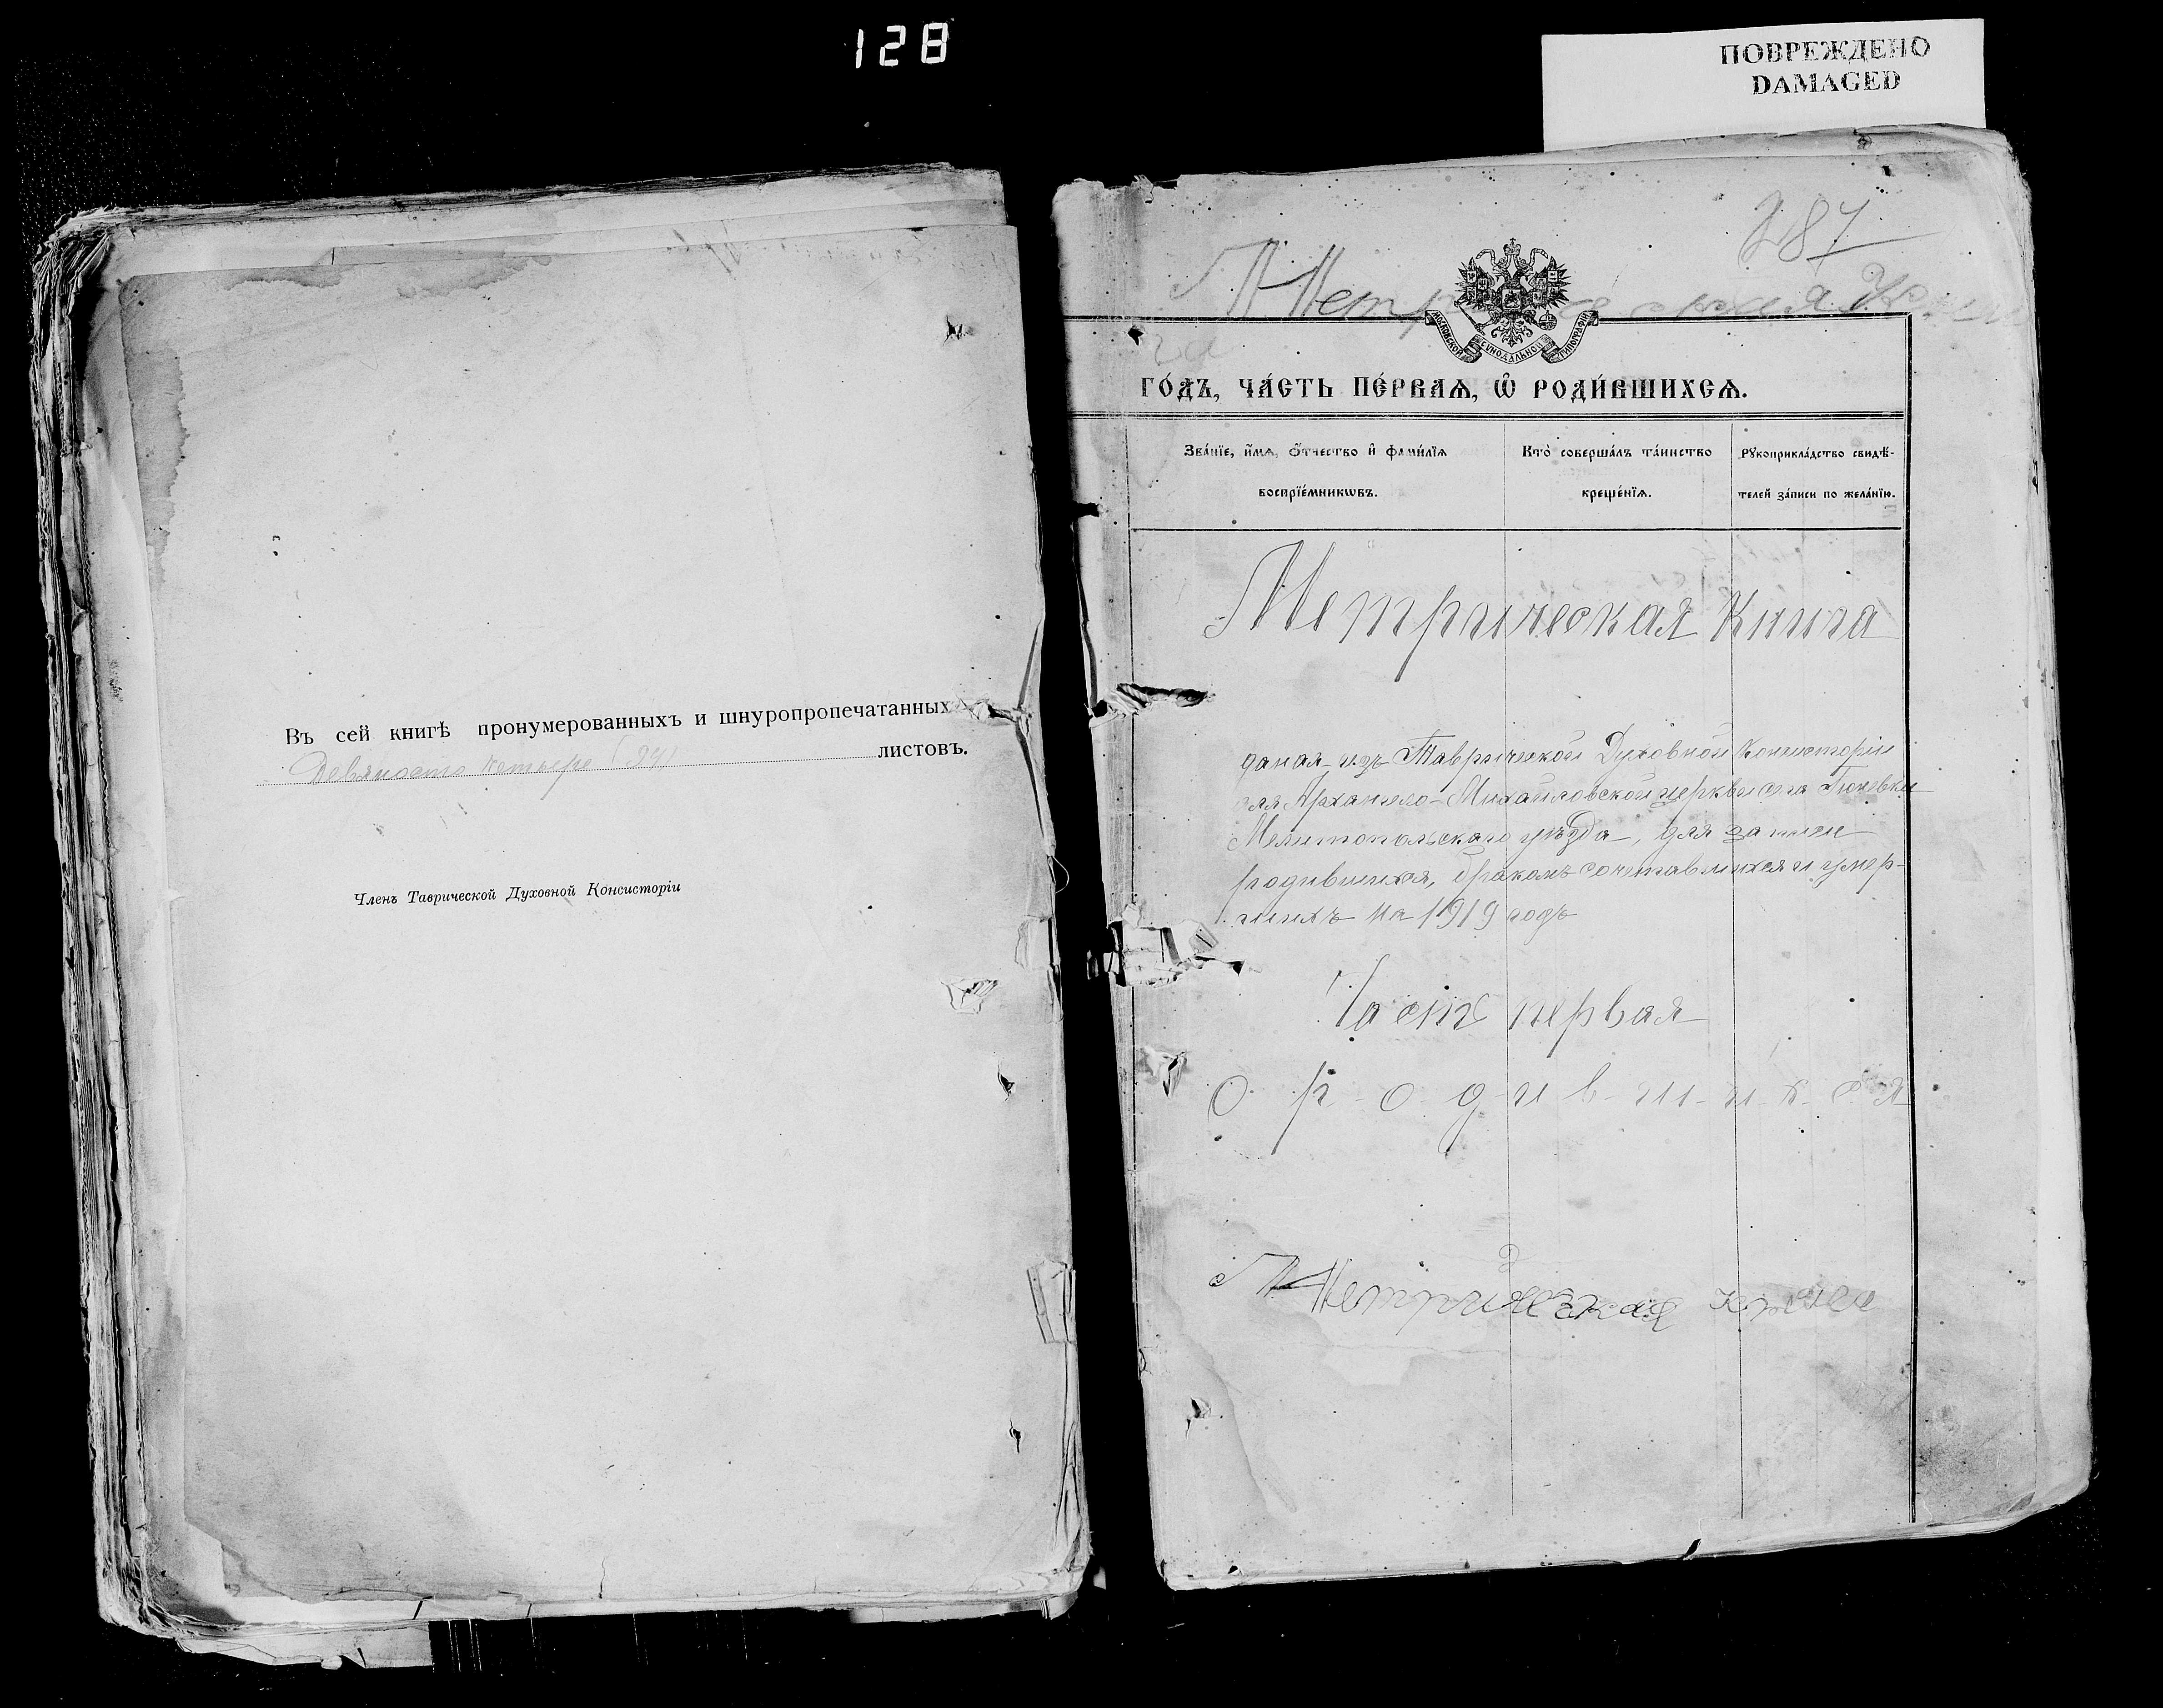 128
ПОВРЕЖДЕНО
DAMAGED
Въ сей книгѣ пронумерованныхъ и шнуропропечатанныхъ
Девяносто четыре (94) листовъ.
Членъ Таврической Духовной Консисторіи
287
Метрическая
МОСКОВСКОЙ СѴНОДАЛЬНОЙ ТИПОГРАФІИ
го́дъ, ча́сть пе́рваѧ, ѡ҆ роди́вшихсѧ.
Зва́нїе, и҆́мѧ, ѻ҆́тчество и҆ фами́лїѧ воспрїе́мникѡвъ.
Кто̀ соверша́лъ та́инство креще́нїѧ.
Рꙋкоприкла́дство свидѣ́телей за́писи по жела́нїю.
Метрическая Книга
даная изъ Таврической Духовной Консисторіи
для Архангело-Михайловской церкви села
Мелитопольскаго уѣзда, для записи
родившихся, бракомъ сочетавшихся и умер-
шихъ на 1919 годъ
Часть первая
О р-о-д-и-в-ш-и-х-с-я
Метрическая